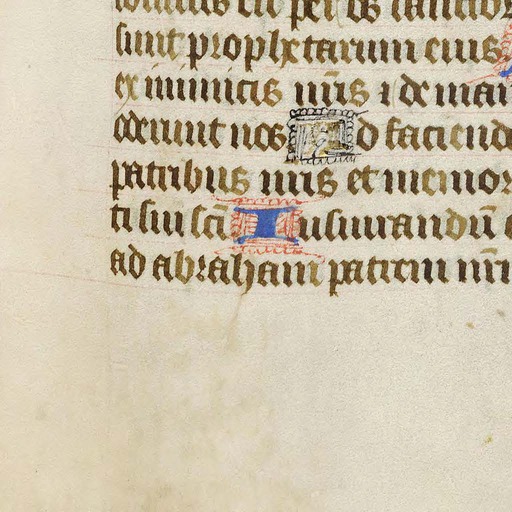 locutus est per os sanctor
sunt prophetarum eius
ex inimicis nr̄is ⁊ de man
oderunt nos Ad faciend
patribus nr̄is et memor
ti sui sc̄i Iusiurandū
ad abraham patrem nr̄